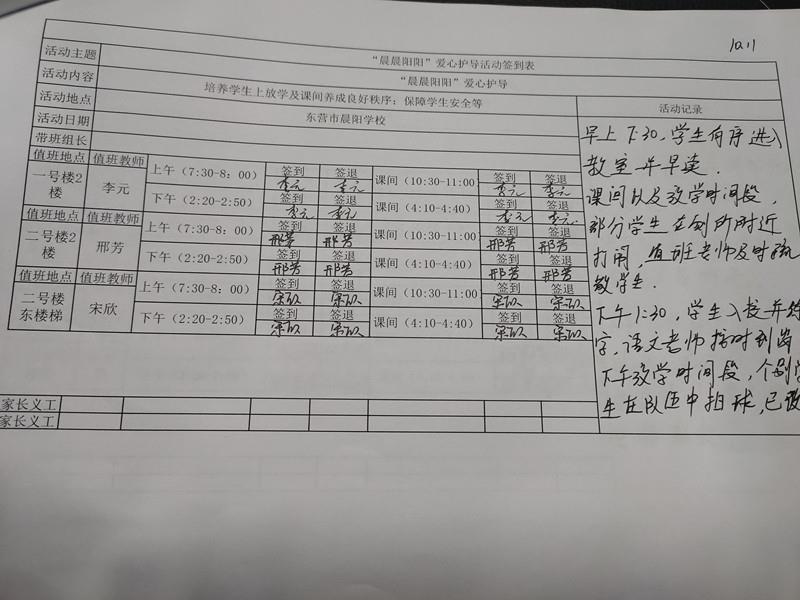 10.11
活动主题 “晨晨阳阳”爱心护导活动签到表
活动内容 “晨晨阳阳”爱心护导
活动地点 培养学生上放学及课间养成良好秩序；保障学生安全等
活动日期 东营市晨阳学校
带班组长
值班地点 值班教师 上午（7:30-8：00） 签到 签退 课间（10:30-11:00） 签到 签退
一号楼2楼 李元 李元 李元 李元 李元
下午（2:20-2:50） 签到 签退 课间（4:10-4:40） 签到 签退
李元 李元 李元 李元
值班地点 值班教师 上午（7:30-8：00） 签到 签退 课间（10:30-11:00） 签到 签退
二号楼2楼 邢芳 邢芳 邢芳 邢芳 邢芳
下午（2:20-2:50） 签到 签退 课间（4:10-4:40） 签到 签退
邢芳 邢芳 邢芳 邢芳
值班地点 值班教师 上午（7:30-8：00） 签到 签退 课间（10:30-11:00） 签到 签退
二号楼东楼梯 宋欣 宋欣 宋欣 宋欣 宋欣
下午（2:20-2:50） 签到 签退 课间（4:10-4:40） 签到 签退
宋欣 宋欣 宋欣 宋欣
家长义工
家长义工
活动记录
早上7:30,学生有序进入
教室并早读.
课间以及放学时间段,
部分学生在厕所附近
打闹,值班老师及时疏
散学生.
下午1:30,学生入校并练
字,语文老师按时到岗
下午放学时间段,个别学
生在队伍中拍球,已